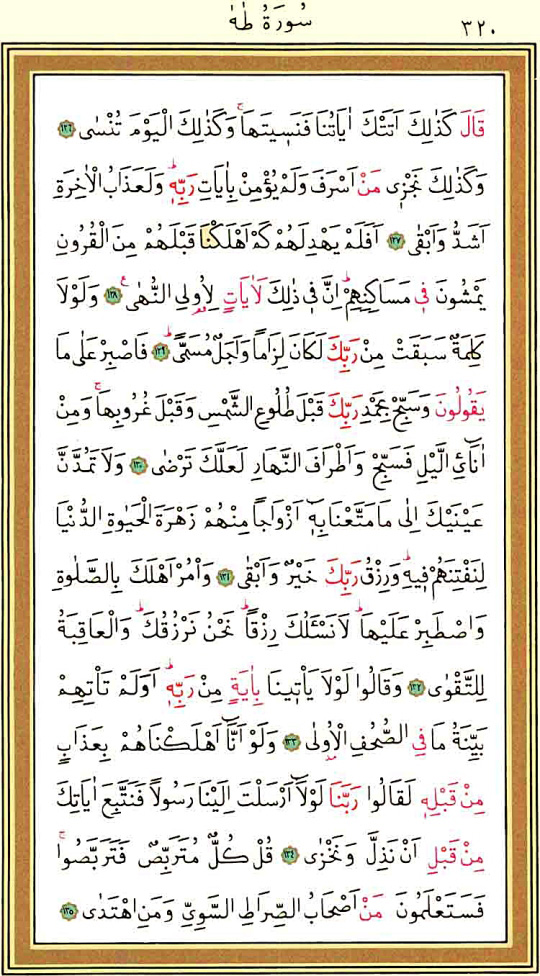 سُورَةُ طٰهٰ
٣٢٠
قَالَ كَذٰلِكَ اَتَتْكَ اٰيَاتُنَا فَنَسٖيتَهَاۚ وَكَذٰلِكَ الْيَوْمَ تُنْسٰى ﴿١٢٦﴾
وَكَذٰلِكَ نَجْزٖى مَنْ اَسْرَفَ وَلَمْ يُؤْمِنْ بِاٰيَاتِ رَبِّهٖؕ وَلَعَذَابُ الْاٰخِرَةِ
اَشَدُّ وَاَبْقٰى ﴿١٢٧﴾ اَفَلَمْ يَهْدِ لَهُمْ كَمْ اَهْلَكْنَا قَبْلَهُمْ مِنَ الْقُرُونِ
يَمْشُونَ فٖى مَسَاكِنِهِمْؕ اِنَّ فٖى ذٰلِكَ لَاٰيَاتٍ لِاُولِى النُّهٰىۚ ﴿١٢٨﴾ وَلَوْلَا
كَلِمَةٌ سَبَقَتْ مِنْ رَبِّكَ لَكَانَ لِزَاماً وَاَجَلٌ مُسَمًّىؕ ﴿١٢٩﴾ فَاصْبِرْ عَلٰى مَا
يَقُولُونَ وَسَبِّحْ بِحَمْدِ رَبِّكَ قَبْلَ طُلُوعِ الشَّمْسِ وَقَبْلَ غُرُوبِهَاۚ وَمِنْ
اٰنَائِ الَّيْلِ فَسَبِّحْ وَاَطْرَافَ النَّهَارِ لَعَلَّكَ تَرْضٰى ﴿١٣٠﴾ وَلَا تَمُدَّنَّ
عَيْنَيْكَ اِلٰى مَا مَتَّعْنَا بِهٖٓ اَزْوَاجاً مِنْهُمْ زَهْرَةَ الْحَيٰوةِ الدُّنْيَا
لِنَفْتِنَهُمْ فٖيهِؕ وَرِزْقُ رَبِّكَ خَيْرٌ وَاَبْقٰى ﴿١٣١﴾ وَاْمُرْ اَهْلَكَ بِالصَّلٰوةِ
وَاصْطَبِرْ عَلَيْهَاؕ لَا نَسْئَلُكَ رِزْقاًؕ نَحْنُ نَرْزُقُكَؕ وَالْعَاقِبَةُ
لِلتَّقْوٰى ﴿١٣٢﴾ وَقَالُوا لَوْلَا يَاْتٖينَا بِاٰيَةٍ مِنْ رَبِّهٖؕ اَوَلَمْ تَاْتِهِمْ
بَيِّنَةُ مَا فِى الصُّحُفِ الْاُولٰى ﴿١٣٣﴾ وَلَوْ اَنَّٓا اَهْلَكْنَاهُمْ بِعَذَابٍ
مِنْ قَبْلِهٖ لَقَالُوا رَبَّنَا لَوْلَٓا اَرْسَلْتَ اِلَيْنَا رَسُولاً فَنَتَّبِعَ اٰيَاتِكَ
مِنْ قَبْلِ اَنْ نَذِلَّ وَنَخْزٰى ﴿١٣٤﴾ قُلْ كُلٌّ مُتَرَبِّصٌ فَتَرَبَّصُواۚ
فَسَتَعْلَمُونَ مَنْ اَصْحَابُ الصِّرَاطِ السَّوِىِّ وَمَنِ اهْتَدٰى ﴿١٣٥﴾